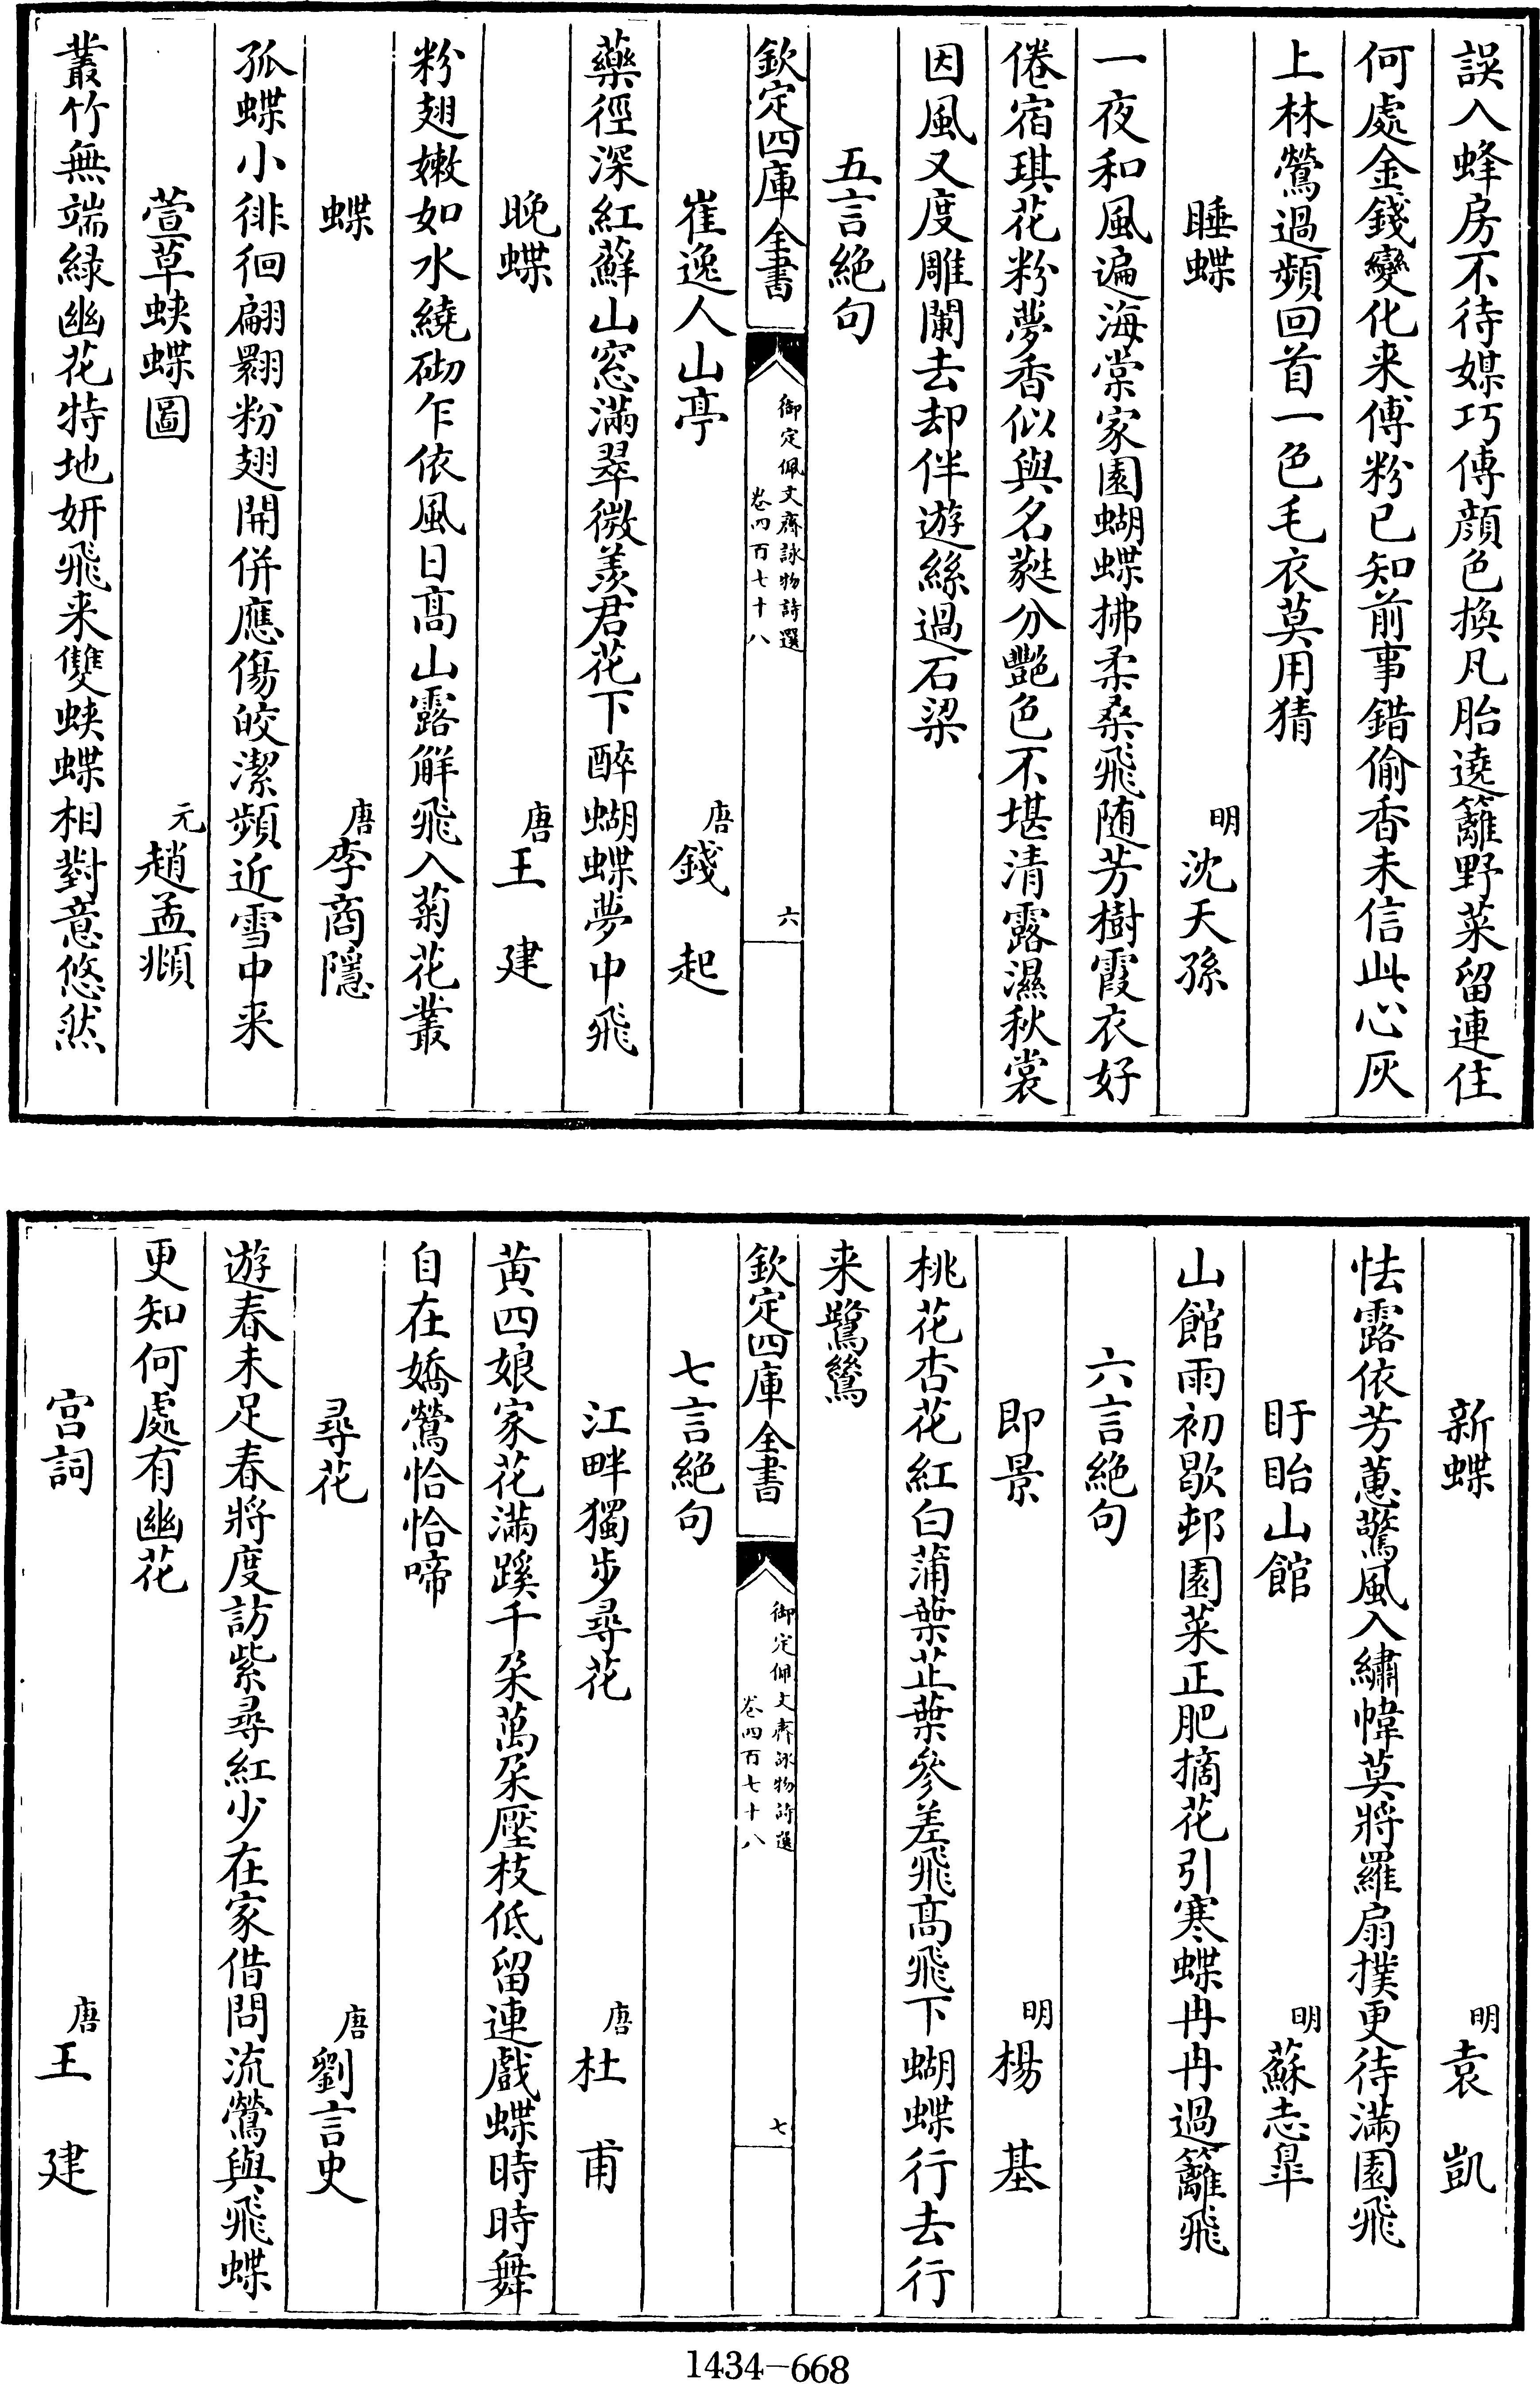 誤入蜂房不待媒巧傅顔色換凡胎遶籬野菜留連住
何處金錢變化来傅粉已知前事錯偷香未信此心灰
上林鶯過頻回首一色毛衣莫用猜
睡蝶　明沈天孫
一夜和風遍海棠家園蝴蝶拂柔桑飛随芳樹霞衣好
倦宿琪花粉夢香似與名蕤分艶色不堪清露濕秋裳
因風又度雕闌去却伴遊絲過石梁
五言絶句
欽定四庫全書
御定佩文齋詠物詩選
卷四百七十八
六
崔逸人山亭　唐錢起
藥徑深紅蘚山窓滿翠微羨君花下醉蝴蝶夢中飛
晚蝶　唐王建
粉翅嫩如水繞砌乍依風日髙山露觧飛入菊花叢
蝶　唐李商隱
孤蝶小徘徊翩翾粉翅開併應傷皎潔頻近雪中来
萱草蛺蝶圖　元趙孟頫
叢竹無端緑幽花特地妍飛来雙蛺蝶相對意悠然
新蝶　明袁凱
怯露依芳蕙驚風入繡幃莫將羅扇撲更待滿園飛
盱眙山館　明蘇志臯
山館雨初歇邨園菜正肥摘花引寒蝶冉冉過籬飛
六言絶句
即景　明楊基
桃花杏花紅白蒲葉芷葉參差飛髙飛下蝴蝶行去行
来鷺鷥
欽定四庫全書
御定佩文齋詠物詩選
卷四百七十八
七
七言絶句
江畔獨步尋花　唐杜甫
黄四娘家花滿蹊千朶萬朶壓枝低留連戲蝶時時舞
自在嬌鶯恰恰啼
尋花　唐劉言史
遊春未足春將度訪紫尋紅少在家借問流鶯與飛蝶
更知何處有幽花
宫詞　唐王建
1434-668